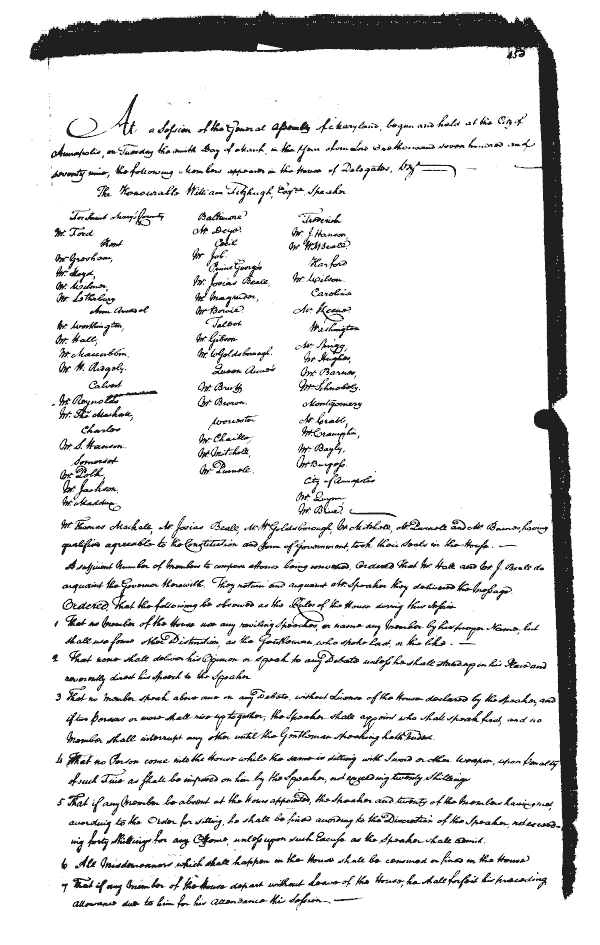 453
At a Session of the General Assembly of Maryland, begun and held at the City of
Annapolis, on Tuesday the ninth Day of March, in the Year of our Lord one thousand seven hundred and
seventy nine, the following Members appear in the House of Delegates, Viz.
The Honourable William Fitzhugh, Esqr. Speaker
For Saint Mary's County
Mr. Ford
Kent
Mr. Gresham,
Mr. Loyd,
Mr. Wilmer,
Mr. Letherbury
Ann Arundel
Mr. Worthington,
Mr. Hall,
Mr. Maccubbin,
Mr. W. Ridgely.
Calvert
Mr. Reynolds
Mr. Ths. Mackall,
Charles
Mr. S. Hanson
Somerset
Mr. Polk
Mr. Jackson,
Mr. Maddux
Baltimore
Mr. Deye
Cecil
Mr. Job.
Prince George's
Mr. Josias Beall,
Mr. Magruder,
Mr. Bowie
Talbot
Mr. Gibson
Mr. W Goldsborough.
Queen Anne's
Mr. Bruff
Mr. Brown.
Worcester
Mr. Chaille
Mr. Mitchell,
Mr. Purnell.
Frederick
Mr. J Hanson,
Mr. W M Beall.
Harford
Mr. Wilson.
Caroline
Mr. Keene
Washington
Mr. Sprigg,
Mr. Hughes,
Mr. Barnes,
Mr. Schnebely.
Montgomery
Mr. Crabb,
Mr. Cramphin,
Mr. Bayly,
Mr. Burgess.
City of Annapolis
Mr. Quynn
Mr. Brice
Mr. Thomas Mackall, Mr. Josias Beall, Mr. W Goldsborough, Mr. Mitchell, Mr. Purnell and Mr. Barnes, having
qualified agreeable to the Constitution and form of Government, took their Seats in the House.
A sufficient Number of members to compose a House being convened, Ordered That Mr. Hall and Mr. J Beall do
acquaint the Governor therewith. They return and acquaint Mr. Speaker they delivered the Message
Ordered, That the following be observed as the Rules of the House during this Session
1 That no member of the House use any reviling Speeches, or name any Member by his proper Name, but
shall use some other Distinction, as the Gentleman who spoke last, or the like.
2 That none shall deliver his Opinion or speak to any Debate unless he shall stand up in his Place and
reverently direct his Speech to the Speaker
3 That no member speak above once on any Debate, without License of the House declared by the Speaker, and
if two Persons or more shall rise up together, the Speaker shall appoint who shall speak first, and no
Member shall interrupt any other until the Gentleman speaking hath ended.
4 That no Person come into the House while the same is sitting with Sword or other Weapon, upon Penalty
of such Fine as shall be imposed on him by the Speaker, not exceeding twenty Shillings
5 That if any Member be absent at the Hour appointed, the Speaker and twenty of the Members having met,
according to the Order for sitting, he shall be fined according to the Discretion of the Speaker, not exceed-
ing forty Shillings for any Offence, unless upon such Excuse as the Speaker shall admit.
6 All Misdemeanors which shall happen in the House shall be censured or fined in the House
7 That if any Member of the house depart without Leave of the House, he shall forfeit his preceding
allowance due to him for his attendance this Session